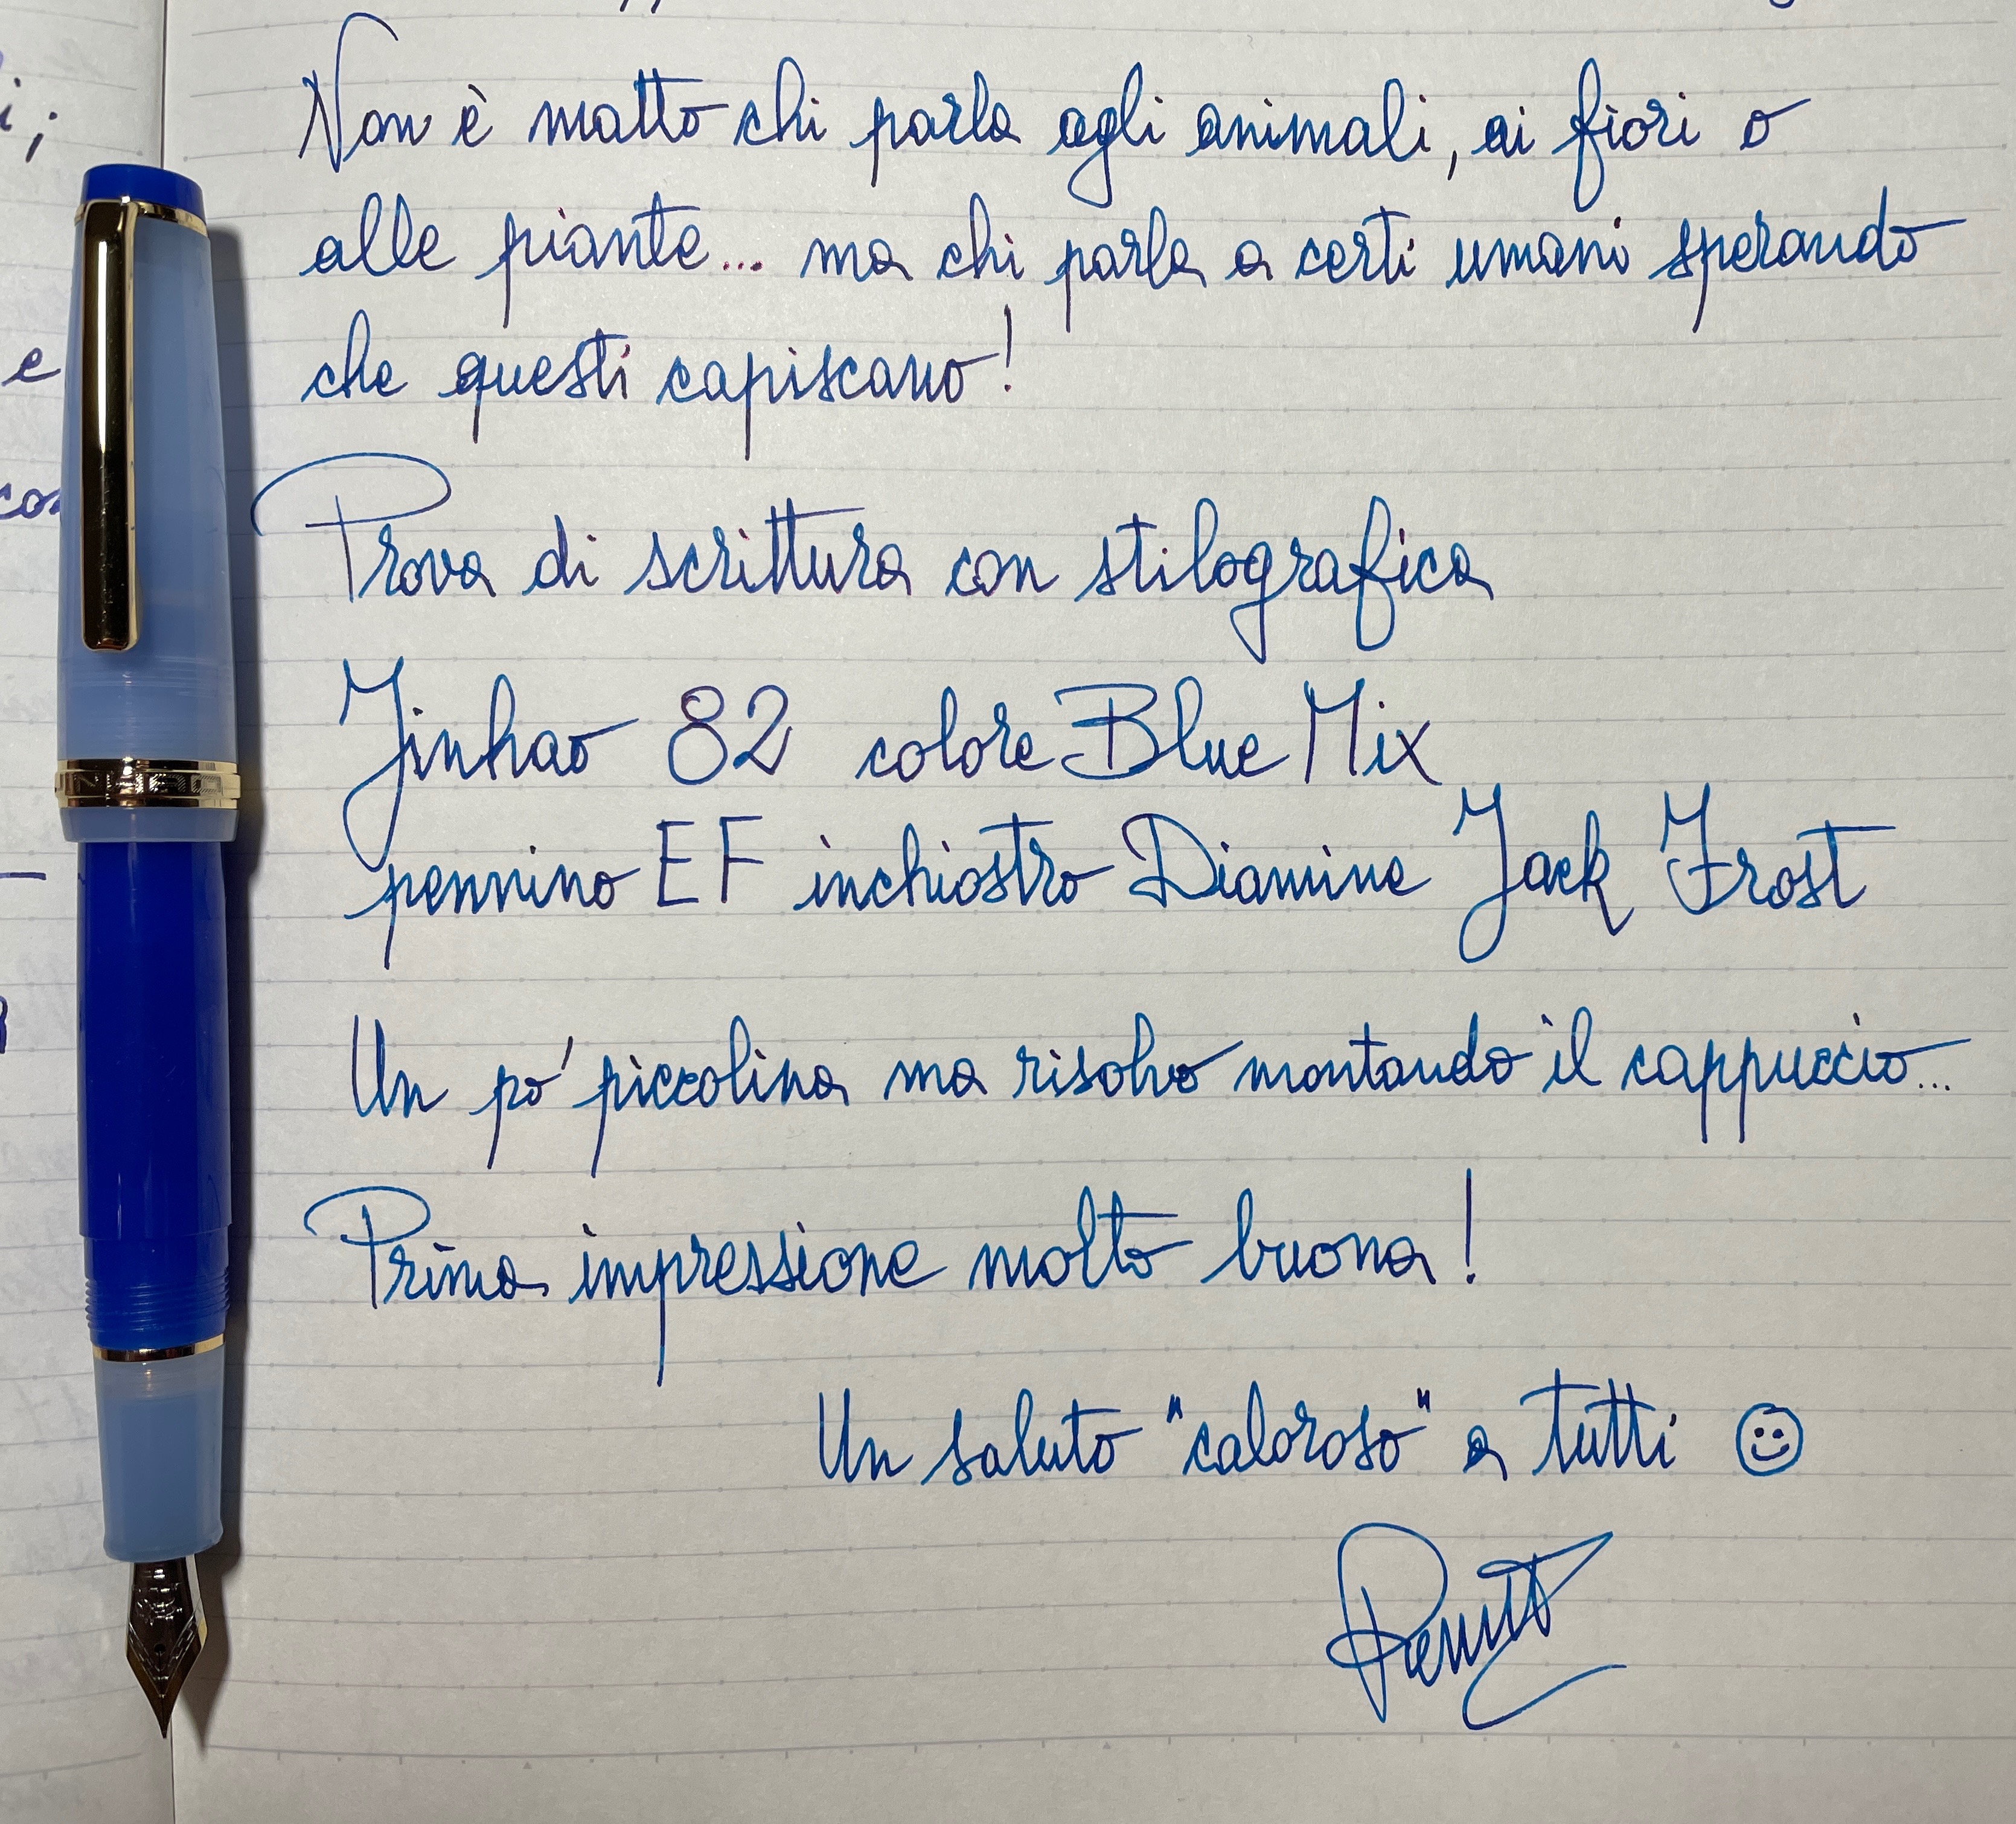 Non è matto chi parla agli animali, ai fiori o
alle piante... ma chi parla a certi umani sperando
che questi capiscano!
Prova di scrittura con stilografica
Jinhao 82 colore Blue Mix
pennino EF inchiostro Diamine Jack Frost
Un po' piccolina ma risolvo montando il cappuccio...
Prima impressione molto buona!
Un saluto "caloroso" a tutti ☺